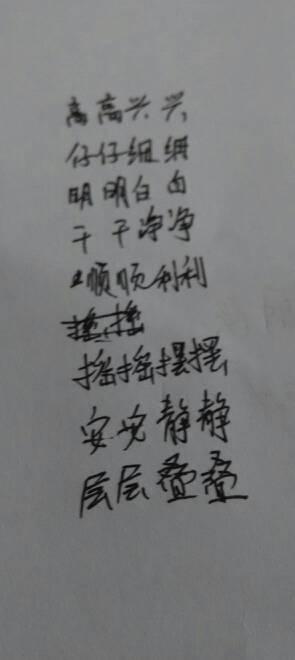 高高兴兴
仔仔细细
明明白白
干干净净
顺顺利利
摇摇
摇摇摆摆
安安静静
层层叠叠